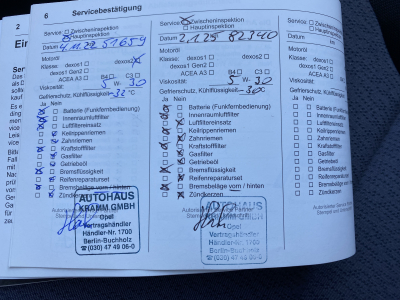 6 Servicebestätigung
2
Ein
Service: Zwischeninspektion
Hauptinspektion
Datum 4.11.22 51659
Motoröl
Klasse: dexos1 dexos2
dexos1 Gen2
ACEA A3 B4 C3
Viskosität: 5 W- 30
Gefrierschutz, Kühlflüssigkeit -32 °C
Ja Nein
Batterie (Funkfernbedienung)
Innenraumluftfilter
Luftfiltereinsatz
Keilrippenriemen
Zahnriemen
Kraftstofffilter
Gasfilter
Getriebeöl
Bremsflüssigkeit
Reifenreparaturset
Bremsbeläge vorn / hinten
Zündkerzen
AUTOHAUS
KRAMM GMBH
Opel
Vertragshändler
Händler-Nr. 1700
Berlin-Buchholz
☎ (030) 47 49 06-0
Service: Zwischeninspektion
Hauptinspektion
Datum 2.1.25 82340
Motoröl
Klasse: dexos1 dexos2
dexos1 Gen2
ACEA A3 B4 C3
Viskosität: 5 W- 30
Gefrierschutz, Kühlflüssigkeit -30 °C
Ja Nein
Batterie (Funkfernbedienung)
Innenraumluftfilter
Luftfiltereinsatz
Keilrippenriemen
Zahnriemen
Kraftstofffilter
Gasfilter
Getriebeöl
Bremsflüssigkeit
Reifenreparaturset
Bremsbeläge vorn / hinten
Zündkerzen
AUTOHAUS
KRAMM GMBH
Opel
Vertragshändler
Händler-Nr. 1700
Berlin-Buchholz
☎ (030) 47 49 06-0
Service:
Datum
Motoröl
Klasse:
Viskosität:
Gefrierschutz,
Ja Nein
Batterie
Innenraum
Luftfilter
Keilrippen
Zahnriemen
Kraftstoff
Gasfilter
Getriebeöl
Bremsflüssig
Reifenrepa
Bremsbeläge
Zündkerzen